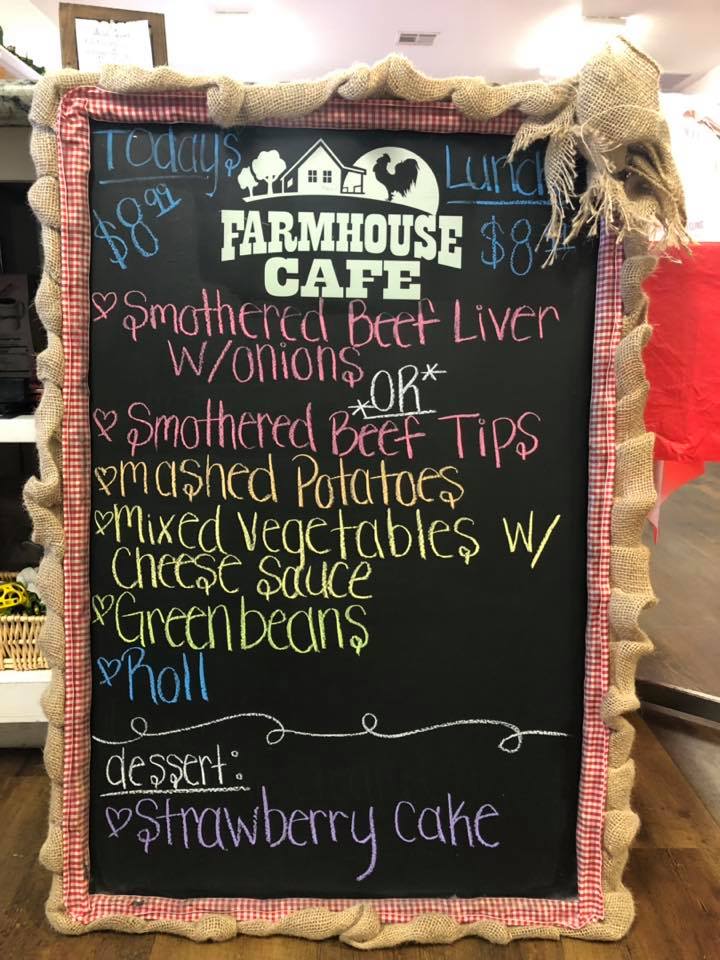 Todays
Lunch
$8.99
$8.
FARMHOUSE
CAFE
Smothered Beef Liver
w/onions
*OR*
Smothered Beef Tips
mashed Potatoes
Mixed vegetables w/
cheese sauce
Greenbeans
Roll
dessert:
Strawberry cake